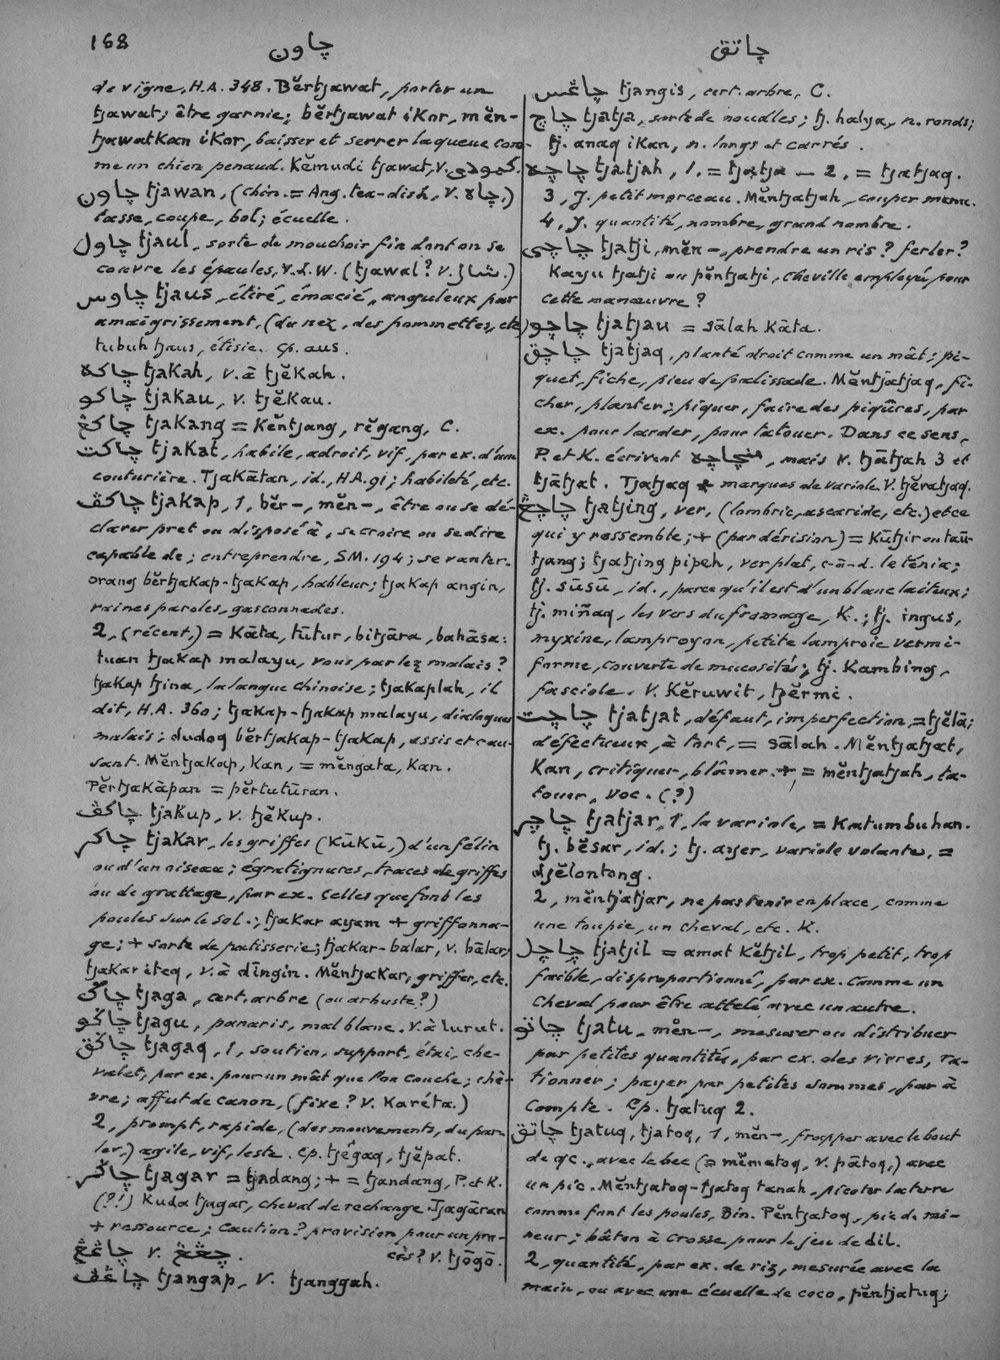 168
چاون
چاتق
de vigne, H.A. 348. Bĕrtjawat, porter un
tjawat; être garnie; bĕrtjawat iKor, mĕn-
tjawatKan iKor, baisser et serrer la queue com-
me un chien penaud. Kĕmudi tjawat, V. كمودي.
چاون tjawan, (chin. = Ang. tea-dish, V. چاه.)
tasse, coupe, bol; écuelle.
چاول tjaul, sorte de mouchoir fin dont on se
couvre les épaules, V.d.W. (tjawal? V. شال.)
چاوس tjaus, étiré, émacié, anguleux par
amaigrissement, (du nez, des pommettes, etc.)
tubuh tjaus, étisie. Cp. aus.
چاكه tjaKah, V. à tjĕKah.
چاكو tjaKau, V. tjĕKau.
چاكڠ tjaKang = Kĕntjang, rĕgang, C.
چاكت tjaKat, habile, adroit, vif, par ex. d'une
couturière. TjaKātan, id., HA. 91; habileté, etc.
چاكڤ tjaKap, 1, bĕr-, mĕn-, être ou se dé-
clarer pret ou disposé à, se croire ou se dire
capable de; entreprendre, SM. 194; se vanter.
orang bĕrtjaKap-tjaKap, hableur; tjaKap angin,
vaines paroles, gasconnades.
2, (récent,) = Kāta, tūtur, bitjāra, bahāsa:
tuan tjaKap malayu, vous parlez malais?
tjaKap tjina, la langue chinoise; tjaKaplah, il
dit, H.A. 360; tjaKap-tjaKap malayu, dialogues
malais; dudoq bĕrtjaKap-tjaKap, assis et cau-
sant. MĕntjaKap, Kan, = mĕngata, Kan.
PĕrtjaKàpan = pĕrtutūran.
چاكڤ tjaKup, V. tjĕKup.
چاكر tjaKar, les griffes (KūKū,) d'un félin
ou d'un oiseau; égratignures, traces de griffes
ou de grattage, par ex. celles que font les
poules sur le sol.; tjaKar ayam + griffonna-
ge; + sorte de patisserie; tjaKar-balar, V. bālar;
tjaKar iteq, V. à dīngin. MĕntjaKar, griffer, etc.
چاݢ tjaga, cert. arbre (ou arbuste?)
چاݢو tjagu, panaris, mal blanc. V. à lurut.
چاݢق tjagaq, 1, soutien, support, étai, che-
valet, par ex. pour un mât que l'on couche; chè-
vre; affut de canon, (fixe? V. Karéta.)
2, prompt, rapide, (des mouvements, du par-
ler,) agile, vif, leste. Cp. tjĕgaq, tjĕpat.
چاݢر tjagar = tjadang; + = tjandang, P. et K.
(?!) Kuda tjagar, cheval de rechange. Tjagāran
+ ressource; caution? provision pour un pro-
cès? V. tjōgō.
چاڠڠ V. چڠڠ.
چاڠڤ tjangap, V. tjanggah.
چاڠس tjangis, cert. arbre, C.
چاچ tjatja, sorte de noudles; tj. halya, n. ronds;
tj. anaq iKan, n. longs et carrés.
چاچه tjatjah, 1, = tjatja — 2, = tjatjaq.
3, J. petit morceau. Mĕntjatjah, couper menu.
4, J. quantité, nombre, grand nombre.
چاچي tjatji, mĕn-, prendre un ris? ferler?
Kayu tjatji ou pĕntjatji, cheville employée pour
cette manœuvre?
چاچو tjatjau = sālah Kāta.
چاچق tjatjaq, planté droit comme un mât; pi-
quet, fiche, pieu de palissade. Mĕntjatjaq, fi-
cher, planter; piquer, faire des piqûres, par
ex. pour larder, pour tatouer. Dans ce sens,
P. et K. écrivent منچاچه, mais V. tjātjah 3 et
tjātjat. Tjatjaq + marques de variole. V. tjĕratjaq.
چاچڠ tjatjing, ver, (lombric, ascaride, etc.) et ce
qui y ressemble; + (par dérision) = Kūtjir ou tau-
tjang; tjatjing pipeh, ver plat, c-à-d. le ténia;
tj. sūsū, id., parce qu'il est d'un blanc laiteux;
tj. miñaq, les vers du fromage, K.; tj. ingus,
myxine, lamproyon, petite lamproie vermi-
forme, couverte de mucosités; tj. Kambing,
fasciole. V. Kĕruwit, tjĕrmi.
چاچت tjatjat, défaut, imperfection, = tjĕlā;
défectueux, à tort, = sālah. Mĕntjatjat,
Kan, critiquer, blâmer. + = mĕntjatjah, ta-
touer, Voc. (?)
چاچر tjatjar, 1, la variole, = Katumbuhan.
tj. bĕsar, id.; tj. ayer, variole volante, =
djĕlontong.
2, mĕntjatjar, ne pas tenir en place, comme
une toupie, un cheval, etc. K.
چاچل tjatjil = amat Kĕtjil, trop petit, trop
faible, disproportionné, par ex. comme un
cheval pour être attelé avec un autre.
چاتو tjatu, mĕn-, mesurer ou distribuer
par petites quantités, par ex. des vivres, ra-
tionner; payer par petites sommes, par à
compte. Cp. tjatuq 2.
چاتق tjatuq, tjatoq, 1, mĕn-, frapper avec le bout
de qc., avec le bec (= mĕmatoq, V. pātoq,) avec
un pic. Mĕntjatoq-tjatoq tanah, picoter la terre
comme font les poules, Bin. Pĕntjatoq, pic de mi-
neur; bâton à crosse pour le jeu de dil.
2, quantité, par ex. de riz, mesurée avec la
main, ou avec une écuelle de coco, pĕntjatuq;